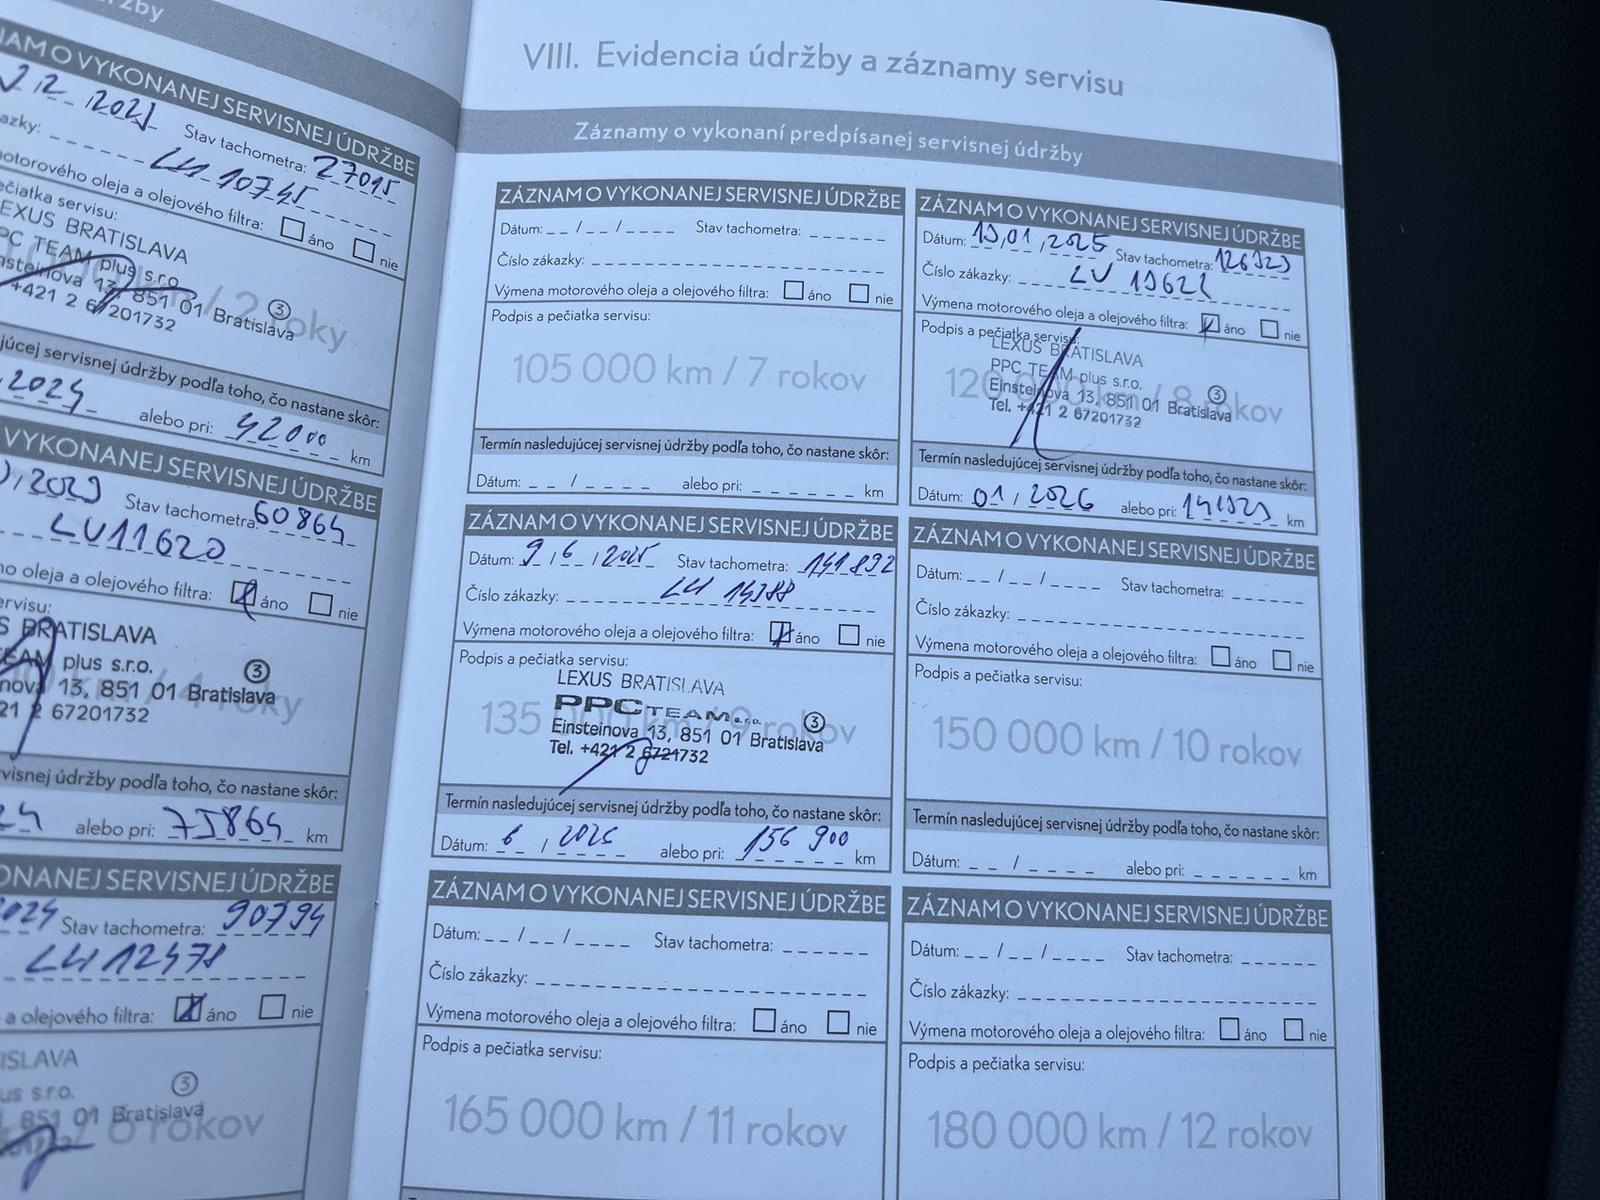 držby
ZÁZNAM O VYKONANEJ SERVISNEJ ÚDRŽBE
Stav tachometra: 27015
motorového oleja a olejového filtra: áno nie
pečiatka servisu:
LEXUS BRATISLAVA
PPC TEAM plus s.r.o.
Einsteinova 13, 851 01 Bratislava
+421 2 67201732
3
2 roky
servisnej údržby podľa toho, čo nastane skôr:
alebo pri: 42000 km
VYKONANEJ SERVISNEJ ÚDRŽBE
Stav tachometra: 60864
LV11620
oleja a olejového filtra: áno nie
BRATISLAVA
TEAM plus s.r.o.
13, 851 01 Bratislava
2 67201732
3
4 roky
údržby podľa toho, čo nastane skôr:
alebo pri: 75864 km
SERVISNEJ ÚDRŽBE
Stav tachometra: 90794
a olejového filtra: áno nie
s.r.o.
851 01 Bratislava
3
rokov
VIII. Evidencia údržby a záznamy servisu
Záznamy o vykonaní predpísanej servisnej údržby
ZÁZNAM O VYKONANEJ SERVISNEJ ÚDRŽBE
Dátum: _ _ / _ _ / _ _ _ _ Stav tachometra: _ _ _ _ _ _
Číslo zákazky:
Výmena motorového oleja a olejového filtra: áno nie
Podpis a pečiatka servisu:
105 000 km / 7 rokov
Termín nasledujúcej servisnej údržby podľa toho, čo nastane skôr:
Dátum: _ _ / _ _ _ _ alebo pri: _ _ _ _ _ _ km
ZÁZNAM O VYKONANEJ SERVISNEJ ÚDRŽBE
Dátum: / 01 / 2025 Stav tachometra:
Číslo zákazky:
Výmena motorového oleja a olejového filtra: áno nie
Podpis a pečiatka servisu:
LEXUS BRATISLAVA
PPC TEAM plus s.r.o.
Einsteinova 13, 851 01 Bratislava
Tel. +421 2 67201732
3
120 000 km / 8 rokov
Termín nasledujúcej servisnej údržby podľa toho, čo nastane skôr:
Dátum: 01 / 2026 alebo pri: km
ZÁZNAM O VYKONANEJ SERVISNEJ ÚDRŽBE
Dátum: 9 / 6 / 2025 Stav tachometra: 141892
Číslo zákazky:
Výmena motorového oleja a olejového filtra: áno nie
Podpis a pečiatka servisu:
LEXUS BRATISLAVA
PPC TEAM s.r.o.
Einsteinova 13, 851 01 Bratislava
Tel. +421 2 6721732
3
135 000 km / 9 rokov
Termín nasledujúcej servisnej údržby podľa toho, čo nastane skôr:
Dátum: 6 / 2026 alebo pri: 156 900 km
ZÁZNAM O VYKONANEJ SERVISNEJ ÚDRŽBE
Dátum: _ _ / _ _ / _ _ _ _ Stav tachometra: _ _ _ _ _ _
Číslo zákazky:
Výmena motorového oleja a olejového filtra: áno nie
Podpis a pečiatka servisu:
150 000 km / 10 rokov
Termín nasledujúcej servisnej údržby podľa toho, čo nastane skôr:
Dátum: _ _ / _ _ _ _ alebo pri: _ _ _ _ _ _ km
ZÁZNAM O VYKONANEJ SERVISNEJ ÚDRŽBE
Dátum: _ _ / _ _ / _ _ _ _ Stav tachometra: _ _ _ _ _ _
Číslo zákazky:
Výmena motorového oleja a olejového filtra: áno nie
Podpis a pečiatka servisu:
165 000 km / 11 rokov
ZÁZNAM O VYKONANEJ SERVISNEJ ÚDRŽBE
Dátum: _ _ / _ _ / _ _ _ _ Stav tachometra: _ _ _ _ _ _
Číslo zákazky:
Výmena motorového oleja a olejového filtra: áno nie
Podpis a pečiatka servisu:
180 000 km / 12 rokov